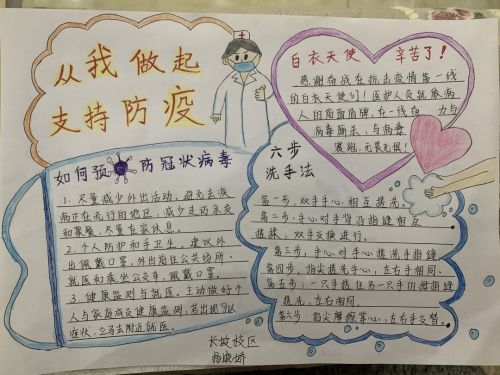 从我做起
支持防疫
白衣天使 辛苦了！
感谢奋战在抗击疫情第一线
的白衣天使们！医护人员就像病
人的盾面盾牌，在一线在 力与
病毒厮杀，与病毒
赛跑，无畏无惧！
如何预防冠状病毒
1. 尽量减少外出活动，避免去疾
病正在流行的地区，减少走访亲友
和聚餐，尽量在家休息。
2. 个人防护和手卫生，建议外
出佩戴口罩，外出前往公共场所、
就医和乘坐公交车，佩戴口罩。
3. 健康监测与就医。主动做好个
人与家庭成员健康监测，若出现可以
症状，立马去附近就医。
六步
洗手法
第一步，双手手心相互搓洗。
第二步，手心对手背沿指缝相互
搓抹，双手交换进行。
第三步，手心对手心搓洗手指缝
第四步，指尖搓洗手心，左右手相同。
第五步，一只手握住另一只手的拇指
搓洗，左右相同。
第六步 指尖摩擦掌心，左右手交替。
长坡校区
杨晓娇